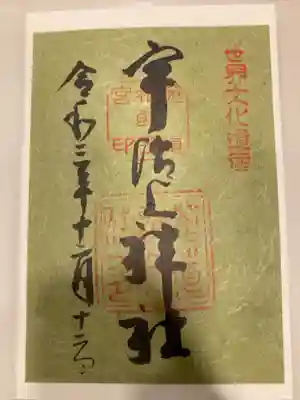 世界文化遺産
宇治上神社
令和三年十二月十二日